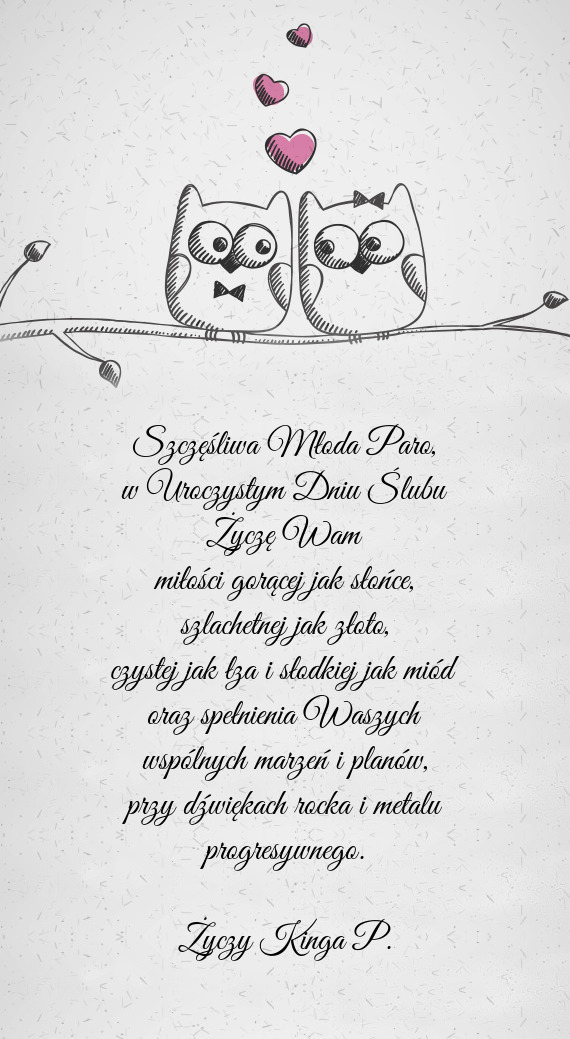 Szczęśliwa Młoda Paro,
w Uroczystym Dniu Ślubu
Życzę Wam
miłości gorącej jak słońce,
szlachetnej jak złoto,
czystej jak łza i słodkiej jak miód
oraz spełnienia Waszych
wspólnych marzeń i planów,
przy dźwiękach rocka i metalu
progresywnego.
Życzy Kinga P.